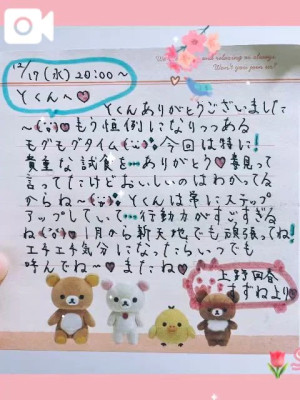 12/17(水)20:00〜
Yくんへ♡
Yくんありがとうございました
〜♡もう恒例になりつつある
モグモグタイム 今回は特に!
貴重な試食を…ありがとう♡
言ってたけどおいしいのはわかってる
からね〜♡Yくんは常にステップ
アップしていて…行動力がすごすぎる
ね♡1月から新天地でも頑張ってね!
エチエチ気分になったらいつでも
呼んでね〜またね♡
上野回春
すずねより♡